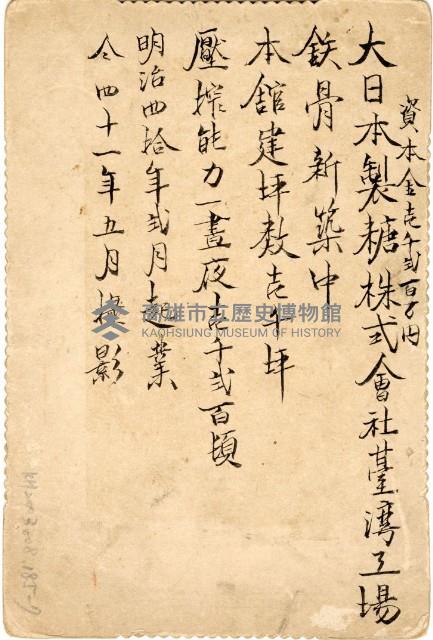 資本金壱千弐百万円
大日本製糖株式會社臺灣工場
鉄骨新築中
本舘建坪数壱千坪
壓搾能力一晝夜壱千弐百頃
明治四拾年弐月起業
仝四十一年五月撮影
高雄市立歷史博物館
KAOHSIUNG MUSEUM OF HISTORY